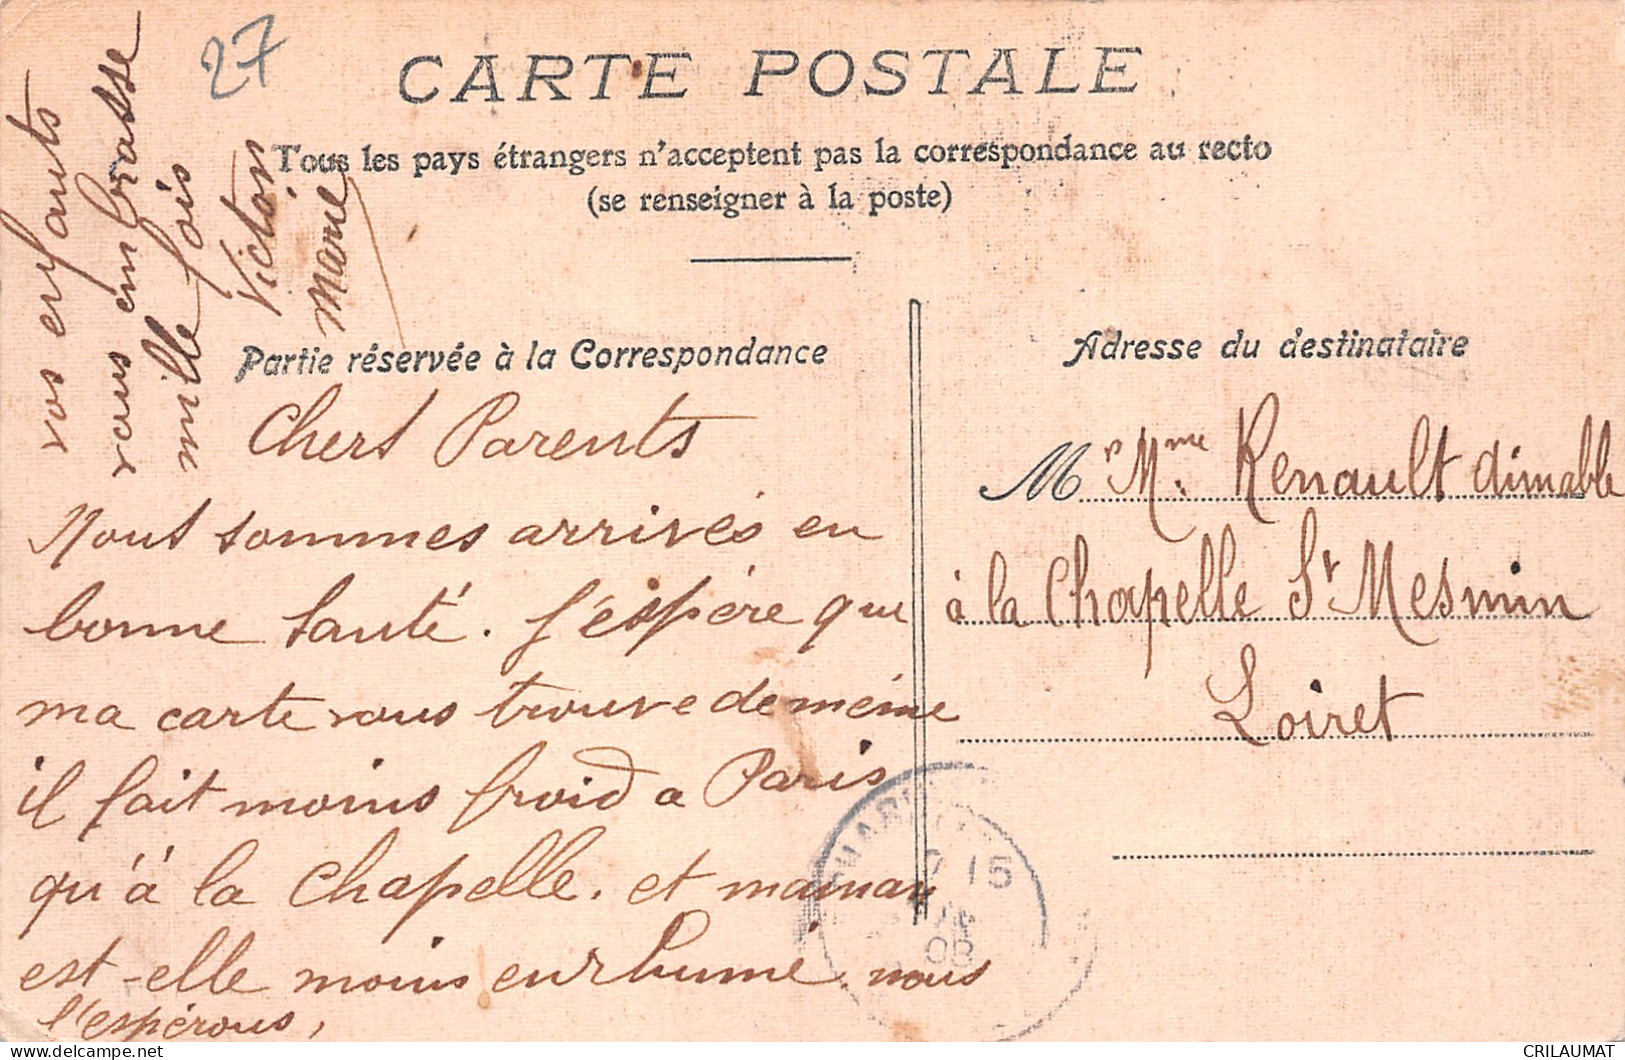 27
CARTE POSTALE
Tous les pays étrangers n'acceptent pas la correspondance au recto
(se renseigner à la poste)
Partie réservée à la Correspondance
Adresse du destinataire
Chers Parents
Nous sommes arrivés en
bonne santé. J'éspère que
ma carte vous trouve de même
il fait moins froid a Paris
qu'à la Chapelle. et maman
est-elle moins enrhumé nous
l'espérous,
vos enfants
vous embrasse
mille fois
Victor
Marie
M r Mme Renault
à la Chapelle St Mesmin
Loiret
15
08
CRILAUMAT